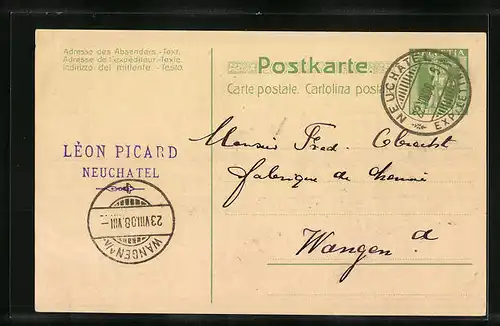 Adresse des Absenders.-Text.
Adresse de l'expéditeur-Texte.
Indirizzo del mittente -Testo
Postkarte
Carte postale. Cartolina post
NEUCHATEL
EXP. LETT
LÈON PICARD
NEUCHATEL
WANGEN A/A
23.VIII.08.VIII—
Monsieur Fred. Obrecht
fabrique de
Wangen a